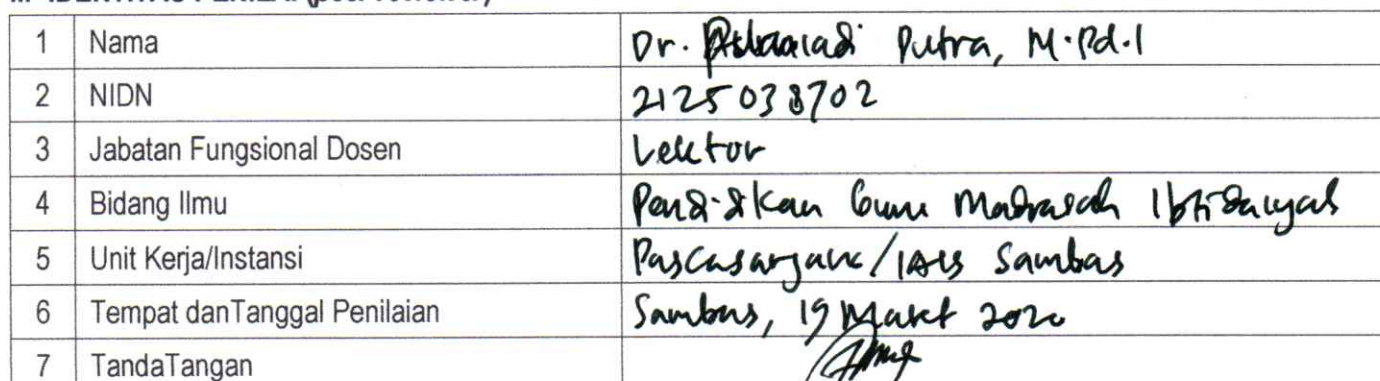 1 Nama Dr. Putra, M.Pd.I
2 NIDN 2125038702
3 Jabatan Fungsional Dosen Lektor
4 Bidang Ilmu Pendidikan Guru Madrasah Ibtidaiyah
5 Unit Kerja/Instansi Pascasarjana/IAIS Sambas
6 Tempat danTanggal Penilaian Sambas, 19 Maret 2020
7 TandaTangan